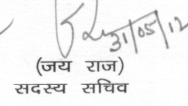 31/05/12
(जय राज)
सदस्य सचिव